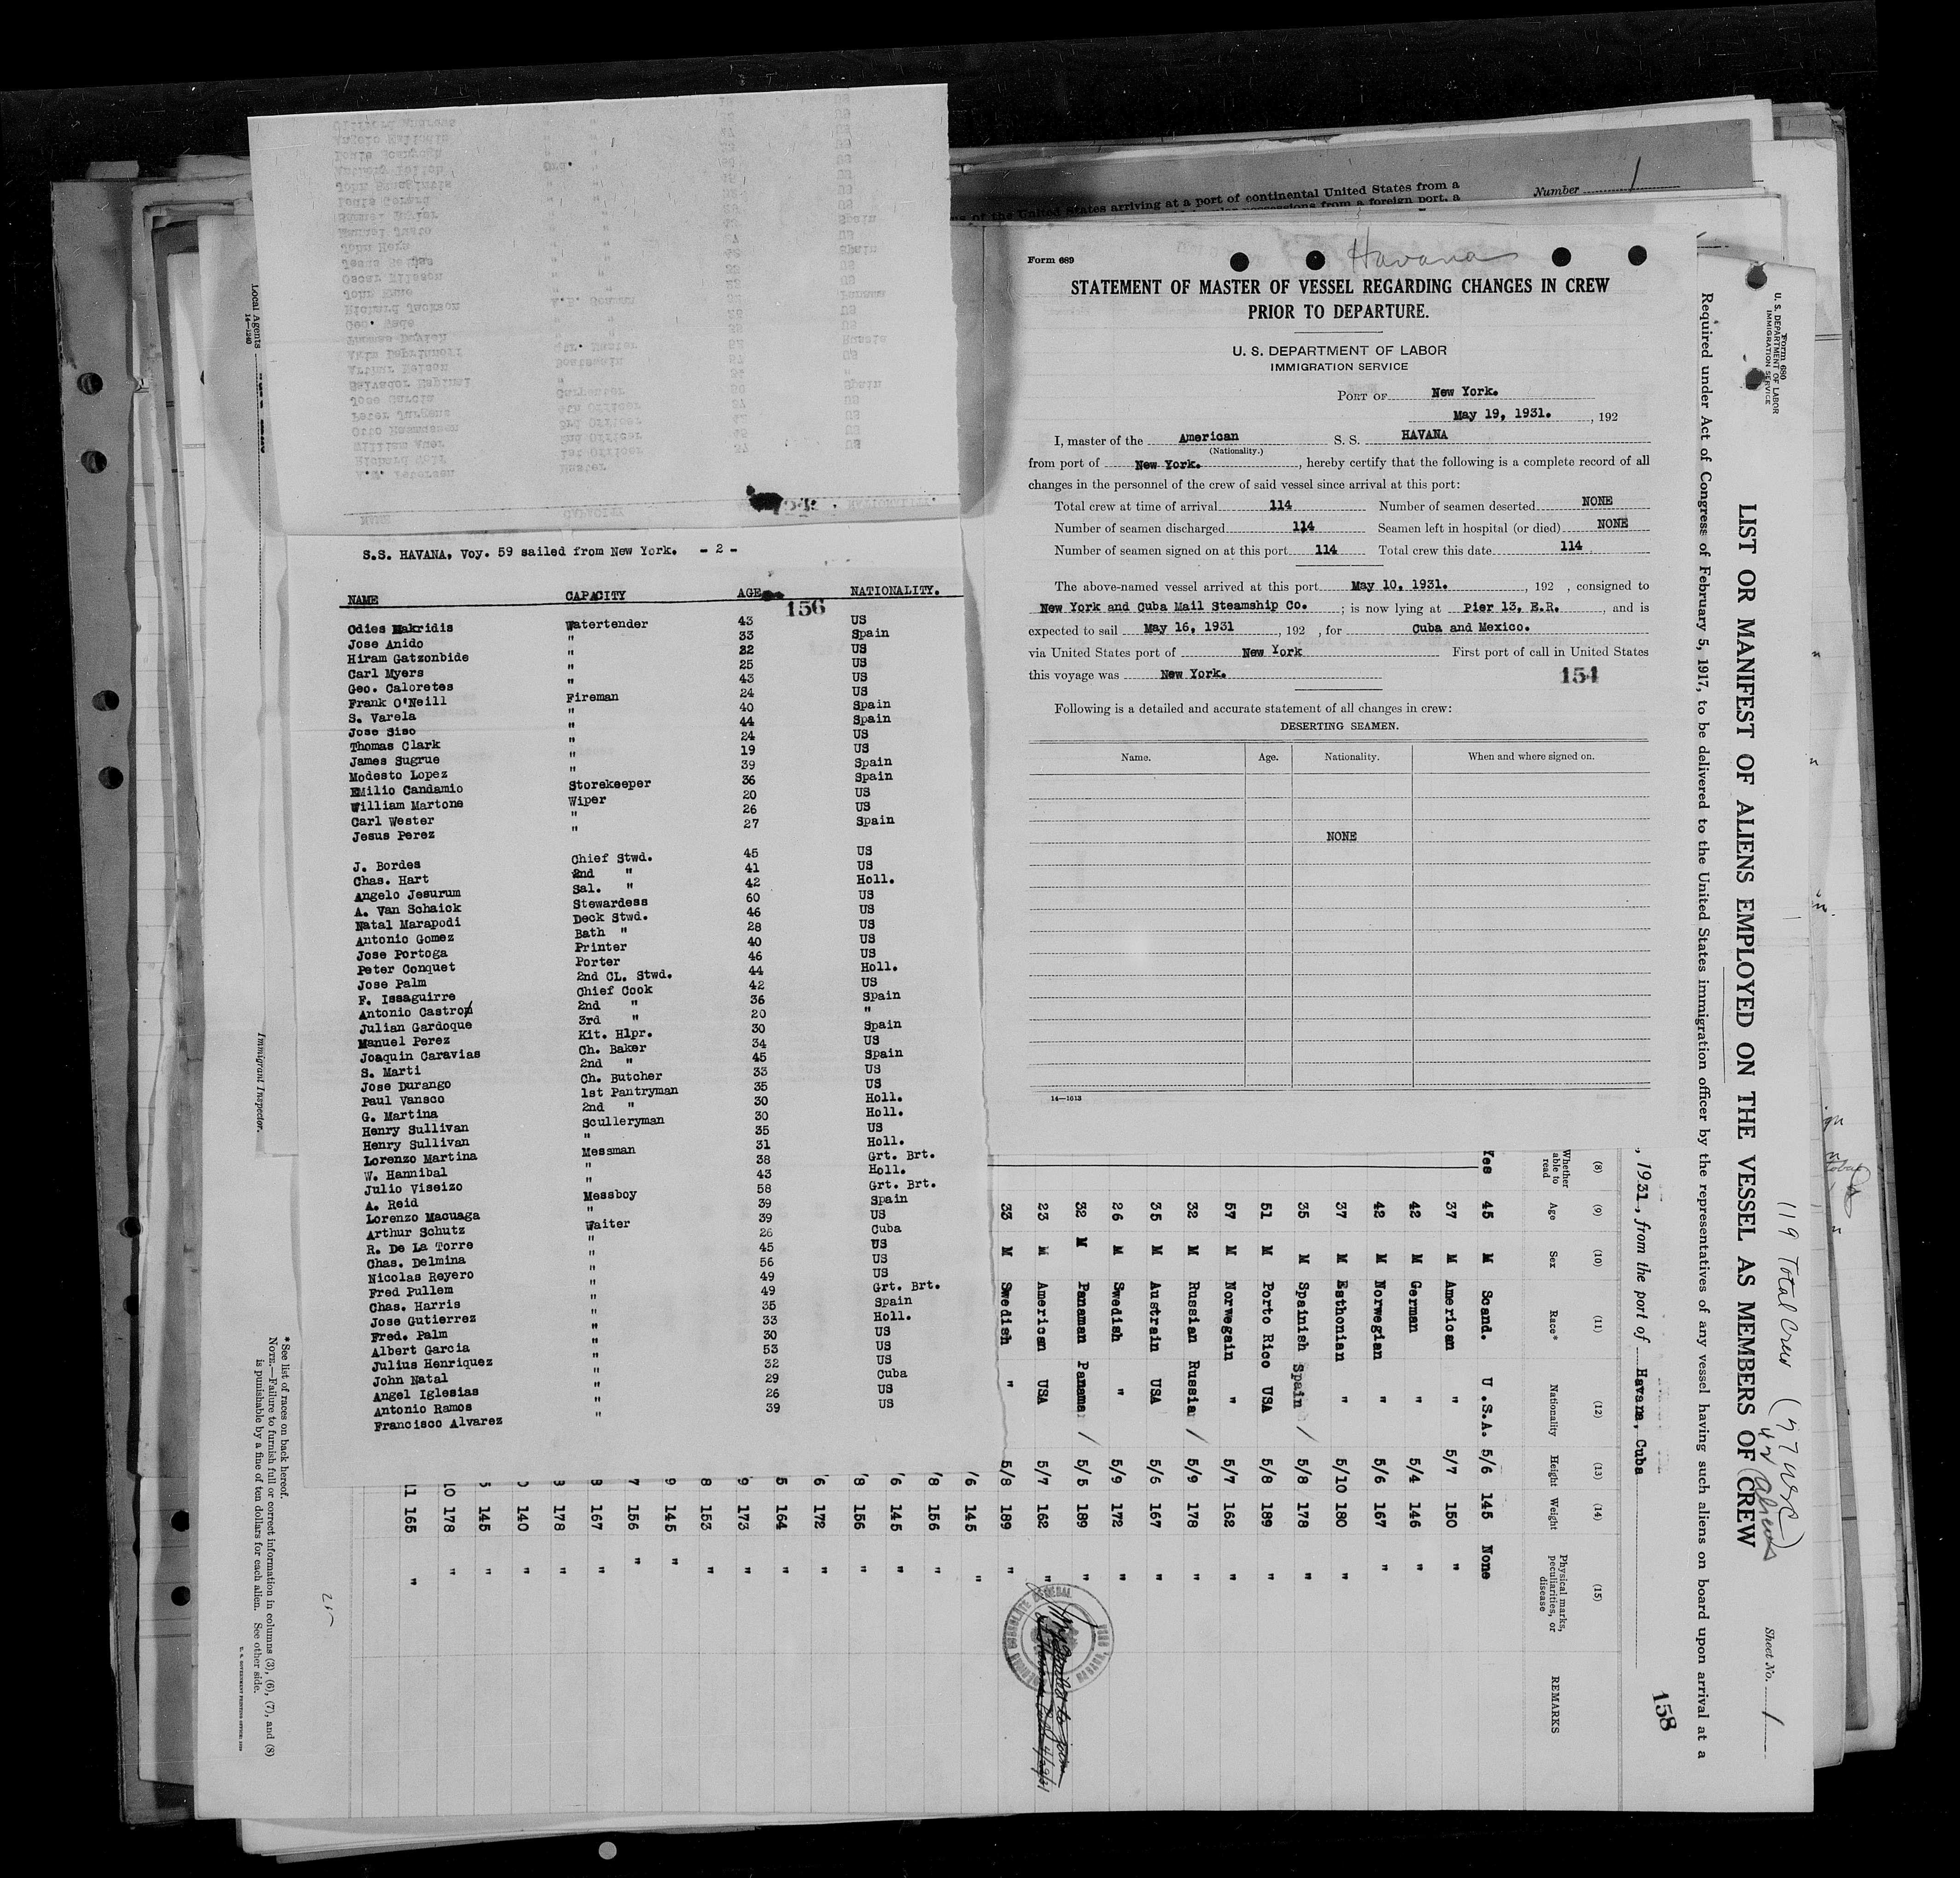 Number 1
arriving at a port of continental United States from a
Form 689
Havana
STATEMENT OF MASTER OF VESSEL REGARDING CHANGES IN CREW
PRIOR TO DEPARTURE.
U. S. DEPARTMENT OF LABOR
IMMIGRATION SERVICE
PORT OF New York.
May 19, 1931. , 192
I, master of the American S. S. HAVANA
(Nationality.)
from port of New York. , hereby certify that the following is a complete record of all
changes in the personnel of the crew of said vessel since arrival at this port:
Total crew at time of arrival 114 Number of seamen deserted NONE
Number of seamen discharged 114 Seamen left in hospital (or died) NONE
Number of seamen signed on at this port 114 Total crew this date 114
The above-named vessel arrived at this port May 10, 1931. , 192 , consigned to
New York and Cuba Mail Steamship Co. ; is now lying at Pier 13, E.R. , and is
expected to sail May 16, 1931 , 192 , for Cuba and Mexico.
via United States port of New York First port of call in United States
this voyage was New York. 154
Following is a detailed and accurate statement of all changes in crew:
DESERTING SEAMEN.
Name. Age. Nationality. When and where signed on.
NONE
14—1613
S.S. HAVANA, Voy. 59 sailed from New York. - 2 -
NAME CAPACITY AGE NATIONALITY.
156
Odies Makridis Watertender 43 US
Jose Anido " 33 Spain
Hiram Gatzonbide " 22 US
Carl Myers " 25 US
Geo. Caloretes " 43 US
Frank O'Neill Fireman 24 US
S. Varela " 40 Spain
Jose Siso " 44 Spain
Thomas Clark " 24 US
James Sugrue " 19 US
Modesto Lopez " 39 Spain
Emilio Candamio Storekeeper 36 Spain
William Martone Wiper 20 US
Carl Wester " 26 US
Jesus Perez " 27 Spain
J. Bordes Chief Stwd. 45 US
Chas. Hart 2nd " 41 US
Angelo Jesurum Sal. " 42 Holl.
A. Van Schaick Stewardess 60 US
Natal Marapodi Deck Stwd. 46 US
Antonio Gomez Bath " 28 US
Jose Portoga Printer 40 US
Peter Conquet Porter 46 US
Jose Palm 2nd CL. Stwd. 44 Holl.
F. Issaguirre Chief Cook 42 US
Antonio Castro 2nd " 36 Spain
Julian Gardoque 3rd " 20 "
Manuel Perez Kit. Hlpr. 30 Spain
Joaquin Caravias Ch. Baker 34 US
S. Marti 2nd " 45 Spain
Jose Durango Ch. Butcher 33 US
Paul Vansco 1st Pantryman 35 US
G. Martina 2nd " 30 Holl.
Henry Sullivan Sculleryman 30 Holl.
Henry Sullivan " 35 US
Lorenzo Martina Messman 31 Holl.
W. Hannibal " 38 Grt. Brt.
Julio Viseizo " 43 Holl.
A. Reid Messboy 58 Grt. Brt.
Lorenzo Macuaga " 39 Spain
Arthur Schutz Waiter 39 US
R. De La Torre " 26 Cuba
Chas. Delmina " 45 US
Nicolas Reyero " 56 US
Fred Pullem " 49 US
Chas. Harris " 49 Grt. Brt.
Jose Gutierrez " 35 Spain
Fred. Palm " 33 Holl.
Albert Garcia " 30 US
Julius Henriquez " 53 US
John Natal " 32 US
Angel Iglesias " 29 Cuba
Antonio Ramos " 26 US
Francisco Alvarez " 39 US
Form 680
U. S. DEPARTMENT OF LABOR
IMMIGRATION SERVICE
Sheet No. 1
119 Total Crew (77 USC)
42 Aliens
LIST OR MANIFEST OF ALIENS EMPLOYED ON THE VESSEL AS MEMBERS OF CREW
Required under Act of Congress of February 5, 1917, to be delivered to the United States immigration officer by the representatives of any vessel having such aliens on board upon arrival at a
158
, 1931., from the port of Havana, Cuba
(8) (9) (10) (11) (12) (13) (14) (15)
Whether able to read Age Sex Race* Nationality Height Weight Physical marks, peculiarities, or disease REMARKS
Yes 45 M Scand. U.S.A. 5/6 145 None
37 M American " 5/7 150 "
42 M German " 5/4 146 "
42 M Norwegian " 5/6 167 "
37 M Esthonian " 5/10 180 "
35 M Spanish Spain / 5/8 178 "
51 M Porto Rico USA 5/8 189 "
57 M Norwegain " 5/7 162 "
32 M Russian Russia / 5/9 178 "
35 M Austrain USA 5/6 167 "
26 M Swedish " 5/9 172 "
32 M Panaman Panama / 5/5 189 "
23 M American USA 5/7 162 "
33 M Swedish " 5/8 189 "
145 "
156 "
145 "
156 "
172 "
164 "
173 "
153 "
145 "
156 "
167 "
178 "
140 "
145 "
178 "
165 "
Local Agents
14—1240
Immigrant Inspector.
*See list of races on back hereof.
NOTE.—Failure to furnish full or correct information in columns (3), (6), (7), and (8)
is punishable by a fine of ten dollars for each alien. See other side.